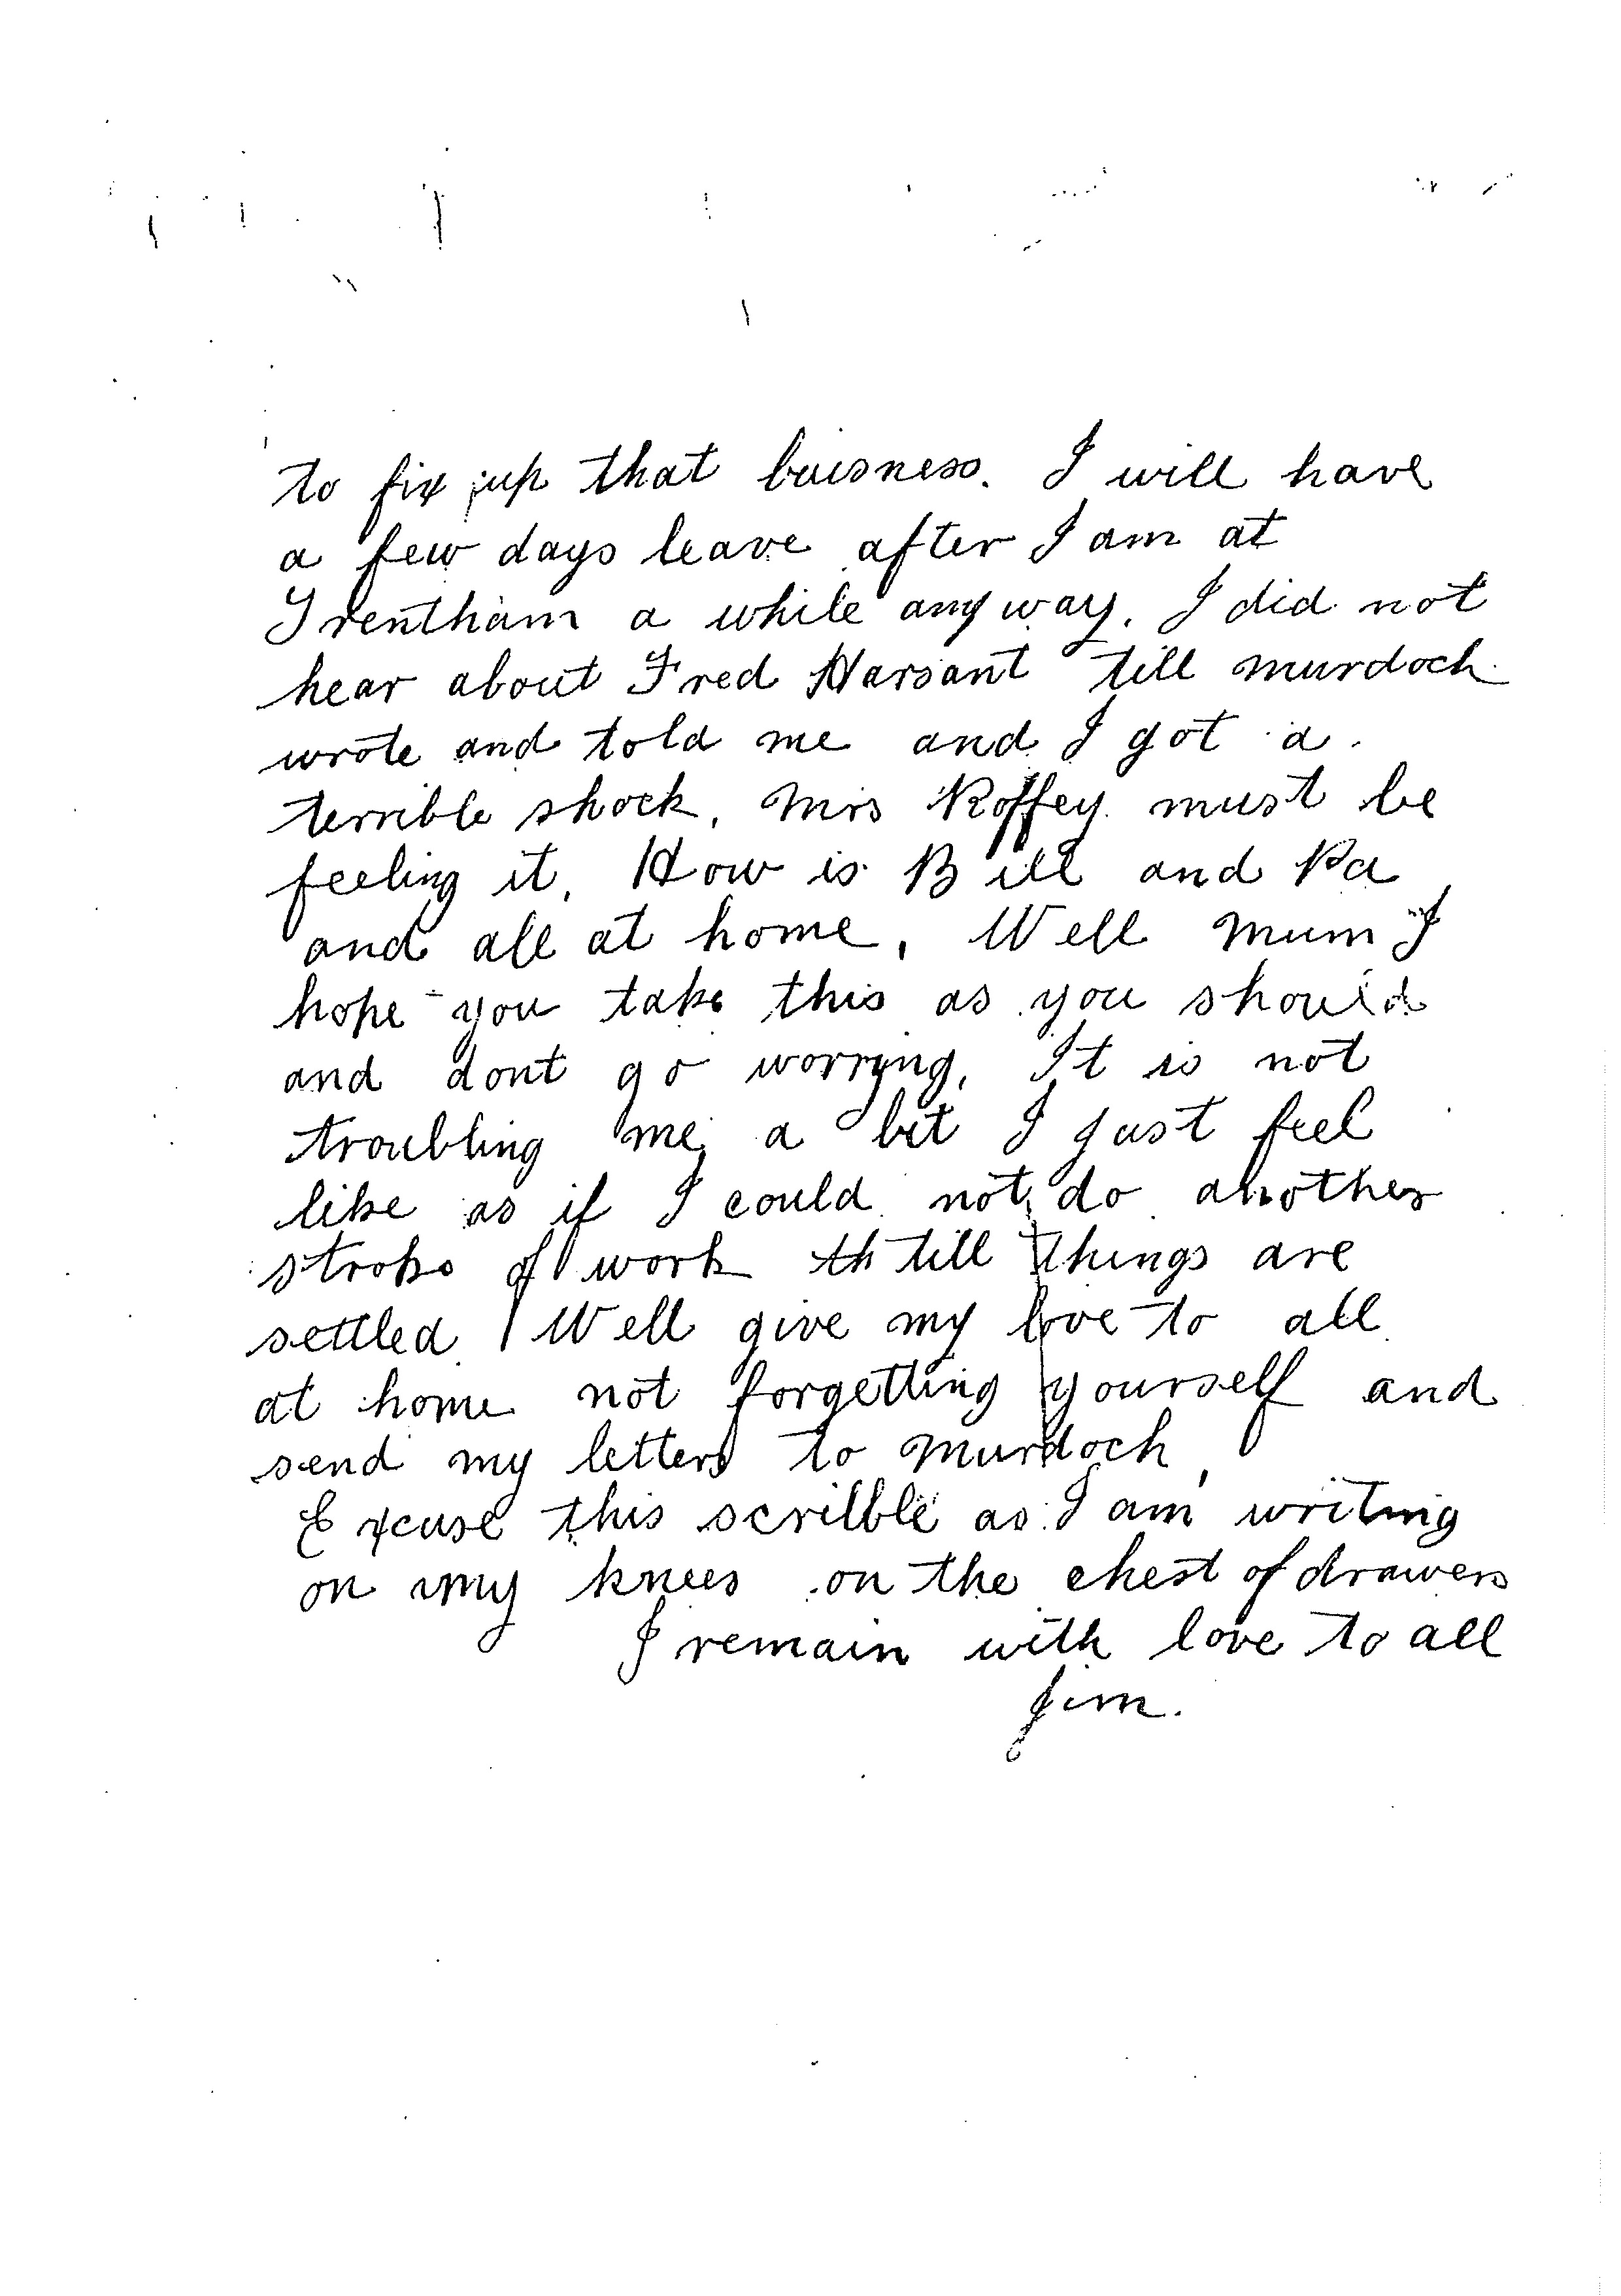 to fix up that buisness. I will have
a few days leave after I am at
Trentham a while any way. I did not
hear about Fred Harsant till murdoch
wrote and told me and I got a
terrible shock. Mrs Roffey must be
feeling it. How is Bill and Pa
and all at home, Well Mum I
hope you take this as you should
and dont go worryng. It is not
troubling me a bit I just feel
like as if I could not do another
stroke of work th till things are
settled. Well give my love to all
at home not forgetting yourself and
send my letters to Murdoch,
Excuse this scribble as I am writing
on my knees on the chest of drawers
I remain with love to all
Jim.